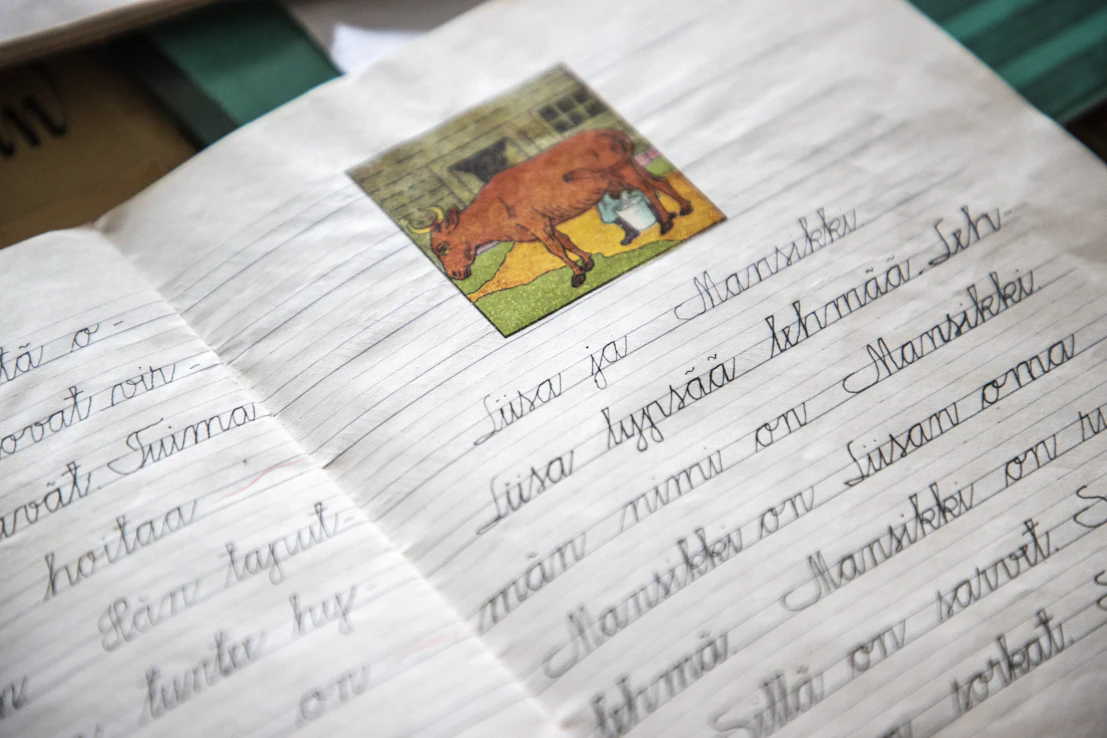 tä o-
ovat vir-
Tuima
hoitaa
Hän taput-
tuntee hy-
on
Liisa ja Mansikki
Liisa lypsää lehmää. Leh-
män nimi on Mansikki.
Mansikki on Liisan oma
lehmä. Mansikki on ru
Sillä on sarvet. S
sorkat. S